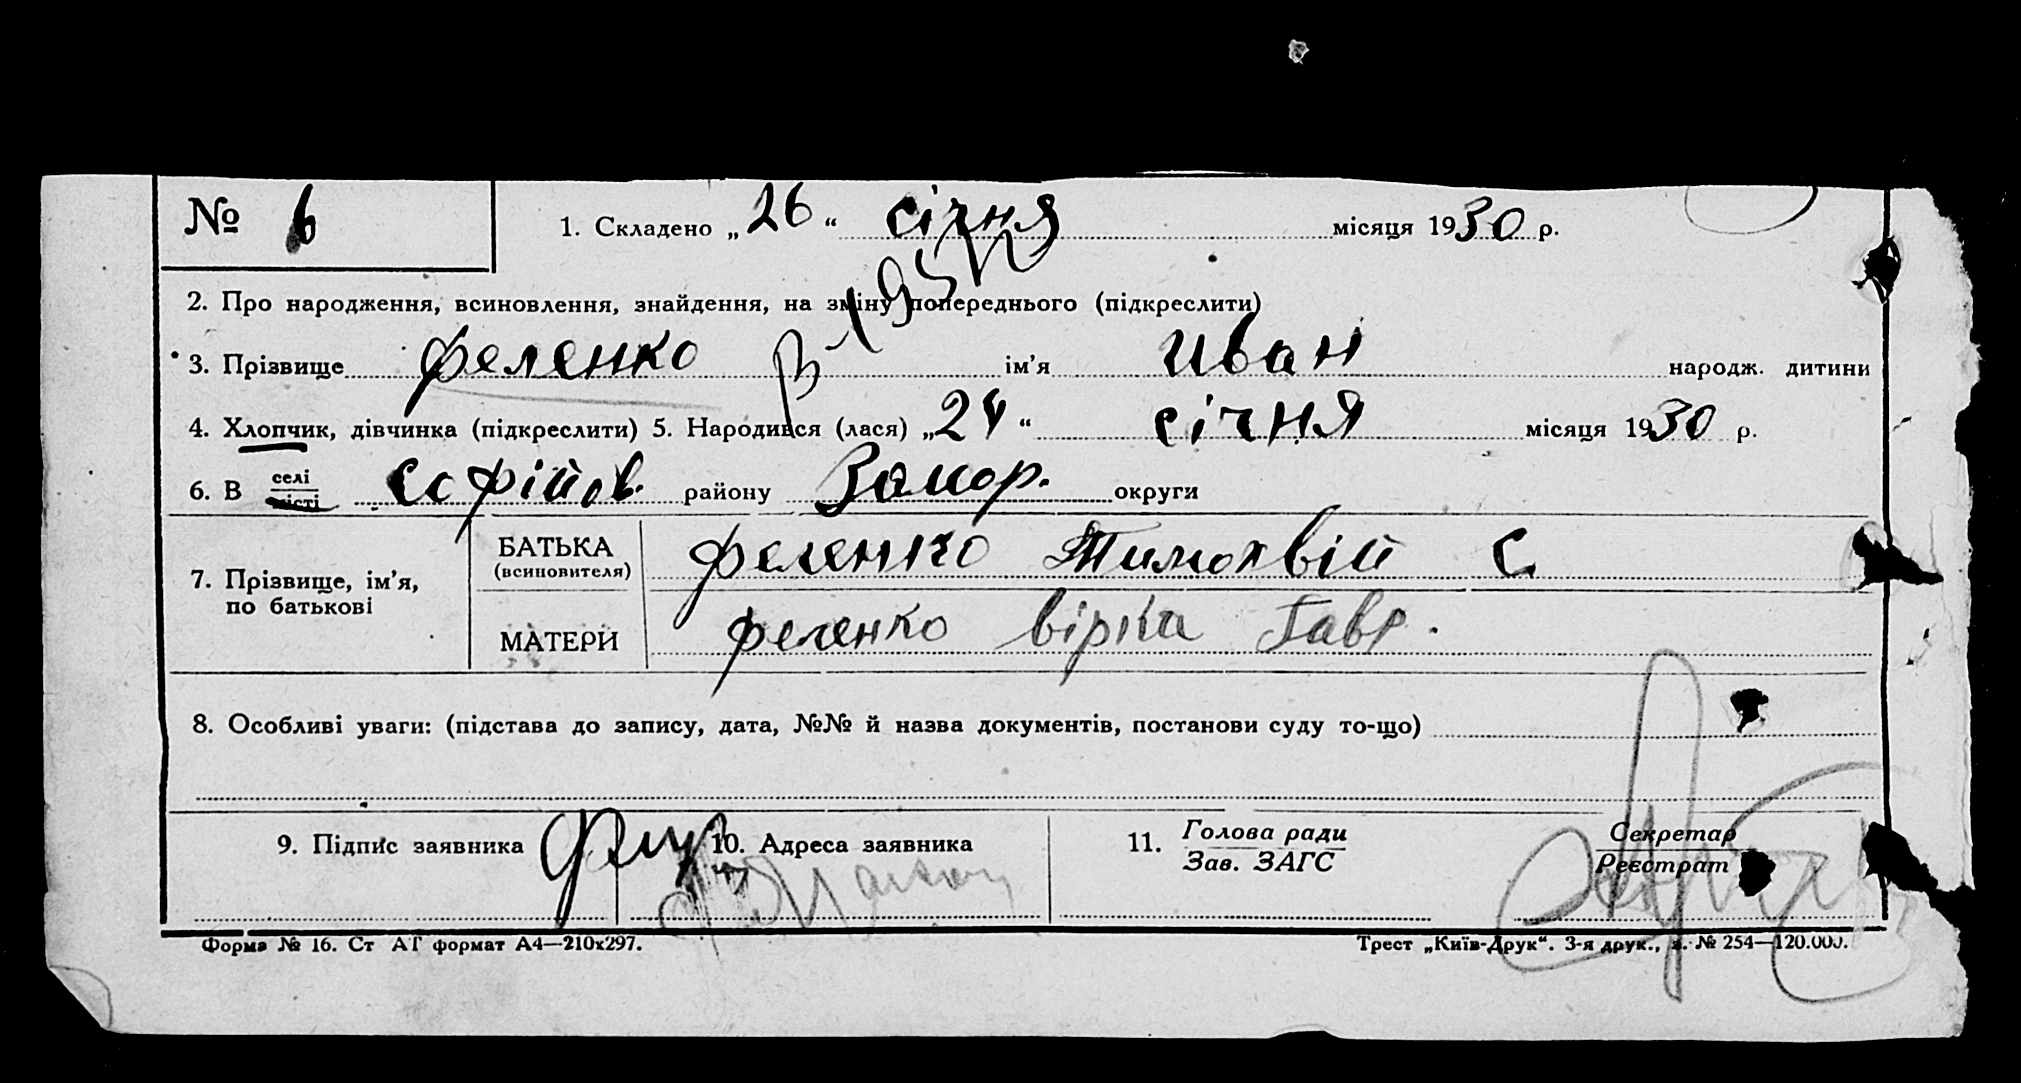 № 6 1. Складено „26“ січня місяця 1930 р.
2. Про народження, всиновлення, знайдення, на зміну попереднього (підкреслити)
3. Прізвище Феленко ім’я Иван народж. дитини
4. Хлопчик, дівчинка (підкреслити) 5. Народився (лася) „24“ січня місяця 1930 р.
6. В селі місті Софійов. району Запор. округи
7. Прізвище, ім’я, по батькові
БАТЬКА (всиновителя) Феленко Тимохвій С.
МАТЕРИ Феленко Вірка Гавр.
8. Особливі уваги: (підстава до запису, дата, №№ й назва документів, постанови суду то-що)
9. Підпис заявника 10. Адреса заявника 11. Голова ради Зав. ЗАГС Секретар Реєстрат
Форма № 16. Ст АТ формат А4—210х297. Трест „Київ-Друк“. 3-я друк., з. № 254—120.000.